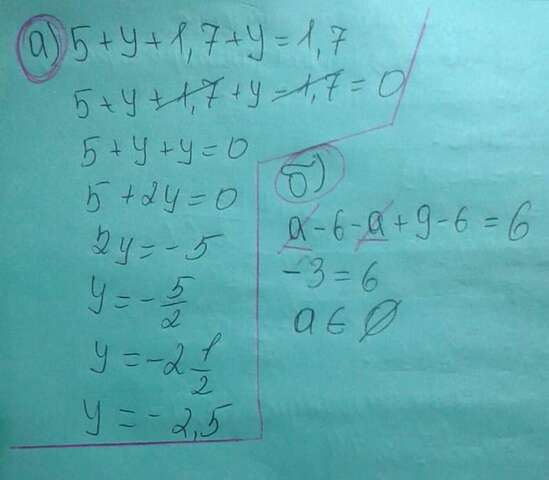 а) 5+y+1,7+y=1,7
5+y+1,7+y=1,7=0
5+y+y=0
5+2y=0
2y=-5
y=-5/2
y=-2 1/2
y=-2,5
б)
a-6-a+9-6=6
-3=6
a∈∅